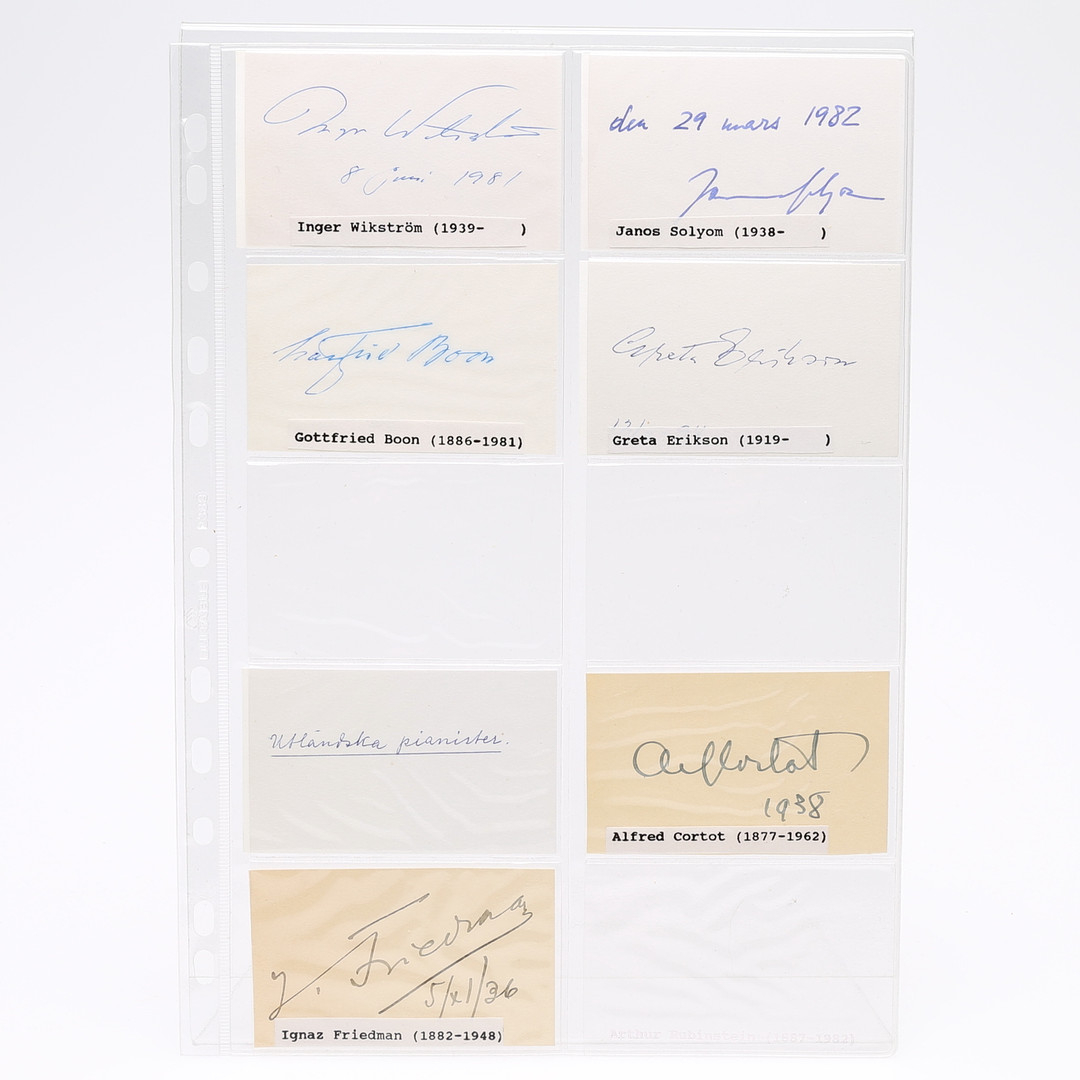 Inger Wikström
8 juni 1981
Inger Wikström (1939-    )
den 29 mars 1982
Janos Solyom
Janos Solyom (1938-    )
Gottfried Boon
Gottfried Boon (1886-1981)
Greta Erikson
Greta Erikson (1919-    )
Utländska pianister.
Alf Cortot
1938
Alfred Cortot (1877-1962)
I. Friedman
5/XI/36
Ignaz Friedman (1882-1948)
Arthur Rubinstein (1887-1982)